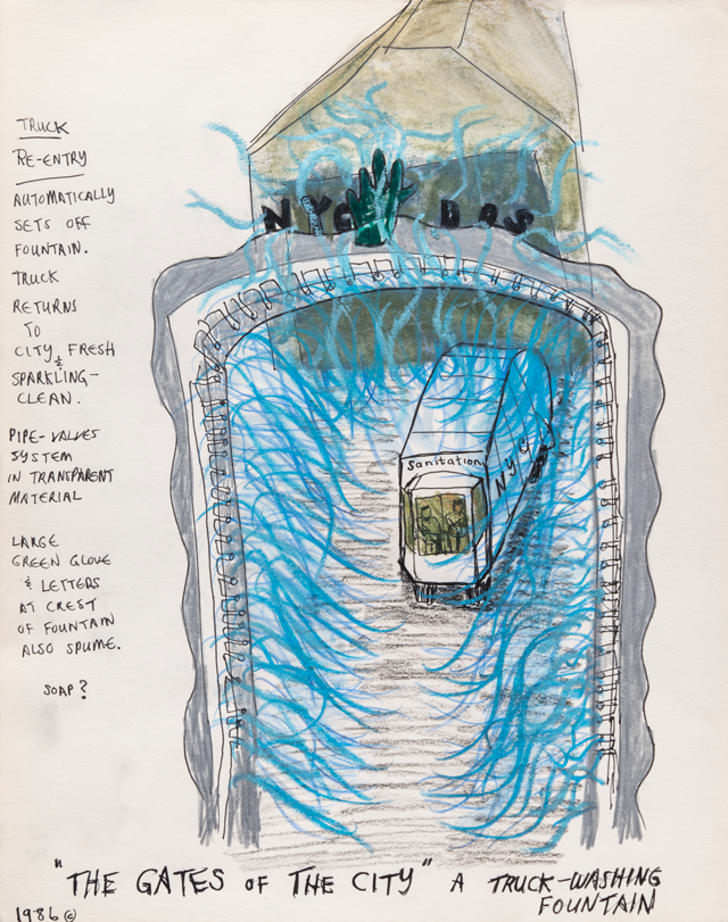 TRUCK
RE-ENTRY
AUTOMATICALLY
SETS OFF
FOUNTAIN.
TRUCK
RETURNS
TO
CITY FRESH
&
SPARKLING-
CLEAN.
PIPE-VALVES
SYSTEM
IN TRANSPARENT
MATERIAL
LARGE
GREEN GLOVE
& LETTERS
AT CREST
OF FOUNTAIN
ALSO SPUME.
SOAP?
NYC DOS
Sanitation
NYC
"THE GATES OF THE CITY" A TRUCK-WASHING
FOUNTAIN
1986 ©